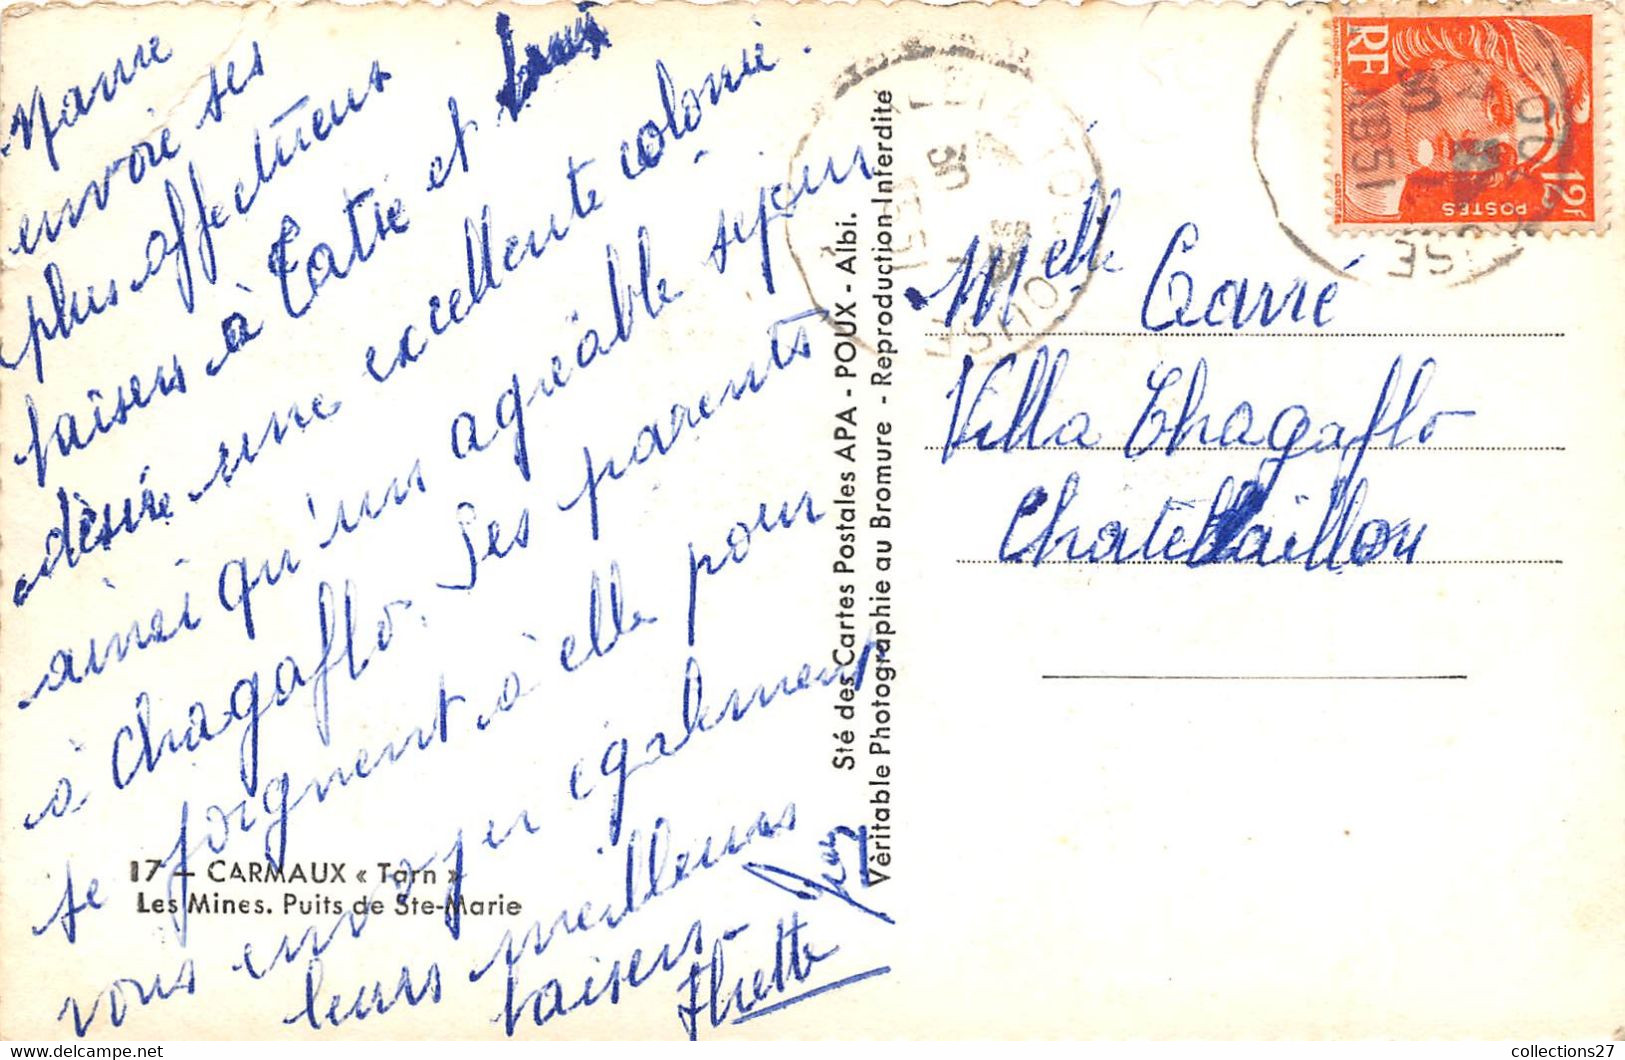 envoie ses
plus affectueux
baisers à Tatie et
désire une excellente colonie.
ainsi qu'un agréable séjour
à Chagaflo. Ses parents
se joignent à elle pour
vous envoyer également
leurs meilleurs
baisers.
17 - CARMAUX « Tarn »
Les Mines. Puits de Ste-Marie
Sté des Cartes Postales APA - POUX - Albi.
Véritable Photographie au Bromure - Reproduction Interdite
RF
POSTES
12F
Melle Carré
Villa Chagaflo
Chatelaillon
collections27